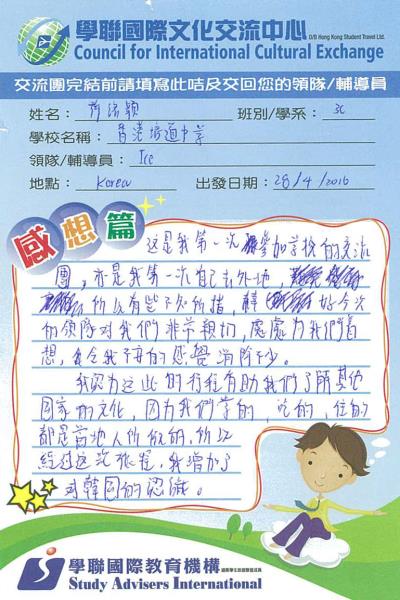 學聯國際文化交流中心 D/B Hong Kong Student Travel Ltd.
Council for International Cultural Exchange
交流團完結前請填寫此咭及交回您的領隊/輔導員
姓名： 班別/學系： 3C
學校名稱： 香港培道中學
領隊/輔導員： Ice
地點： Korea 出發日期： 28/4/2016
感想篇
這是我第一次參加學校的交流
團，亦是我第一次自己去外地，
所以有些不知所措，好今次
的領隊對我們非常親切，處處為我們著
想，我令我不安的感覺消除不少。
我認為這些的行程有助我們了解其他
國家的文化，因為我們穿的，吃的，住的
都是當地人所做的，所以
經過這次旅程，我增加了
對韓國的認識。
學聯國際教育機構
Study Advisers International